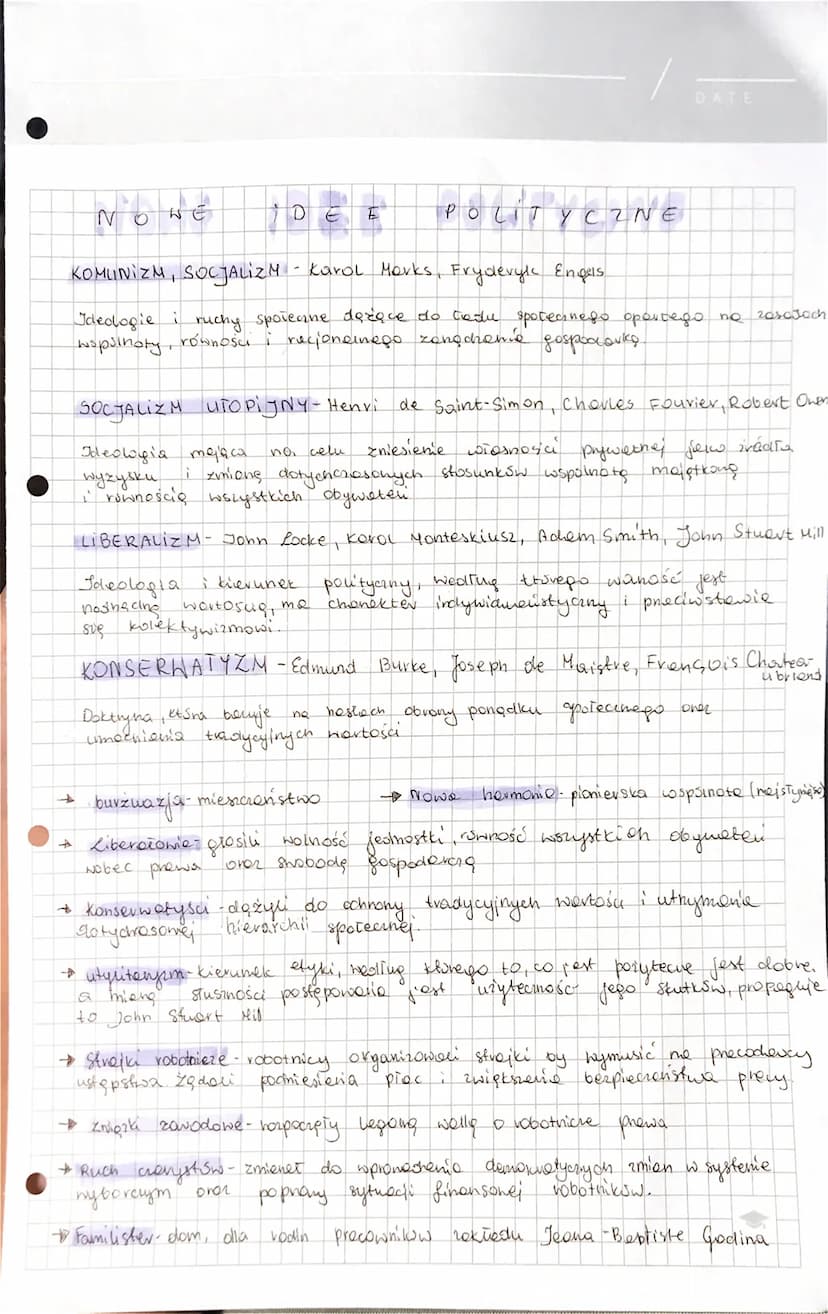 DATE
NOWE IDEE POLITYCZNE
KOMUNIZM, SOCJALIZM - Karol Marks, Fryderyk Engels
Ideologie i ruchy społeczne dążące do ładu społecznego opartego na zasadach
wspólnoty, równości i racjonalnego zarządzania gospodarką.
SOCJALIZM UTOPIJNY - Henri de Saint-Simon, Charles Fourier, Robert Owen
Ideologia mająca na celu zniesienie własności prywatnej jako źródła
wyzysku i zmianę dotychczasowych stosunków wspólnotą majątkową
i równością wszystkich obywateli
LIBERALIZM - John Locke, Karol Monteskiusz, Adam Smith, John Stuart Mill
Ideologia i kierunek polityczny, według którego wolność jest
nadrzędną wartością, ma charakter indywidualistyczny i przeciwstawia
się kolektywizmowi.
KONSERWATYZM - Edmund Burke, Joseph de Maistre, François Chatea-
ubriand
Doktryna, która bazuje na hasłach obrony porządku społecznego oraz
umacniania tradycyjnych wartości
→ burżuazja - mieszczaństwo → Nowa harmonia - pionierska wspólnota
→ Liberałowie - głosili wolność jednostki, równość wszystkich obywateli
wobec prawa oraz swobodę gospodarczą
→ Konserwatyści - dążyli do ochrony tradycyjnych wartości i utrzymania
dotychczasowej hierarchii społecznej.
→ utylitaryzm - kierunek etyki, według którego to, co jest pożyteczne jest dobre,
a miarą słuszności postępowania jest użyteczność jego skutków, propaguje
to John Stuart Mill
→ Strajki robotnicze - robotnicy organizowali strajki by wymusić na pracodawcy
ustępstwa żądali podniesienia płac i zwiększenia bezpieczeństwa pracy.
→ Związki zawodowe - rozpoczęły legalną walkę o robotnicze prawa
→ Ruch czartystów - zmierzał do wprowadzenia demokratycznych zmian w systemie
wyborczym oraz poprawy sytuacji finansowej robotników.
→ Familister - dom, dla rodzin pracowników zakładu Jeana-Baptiste Godina